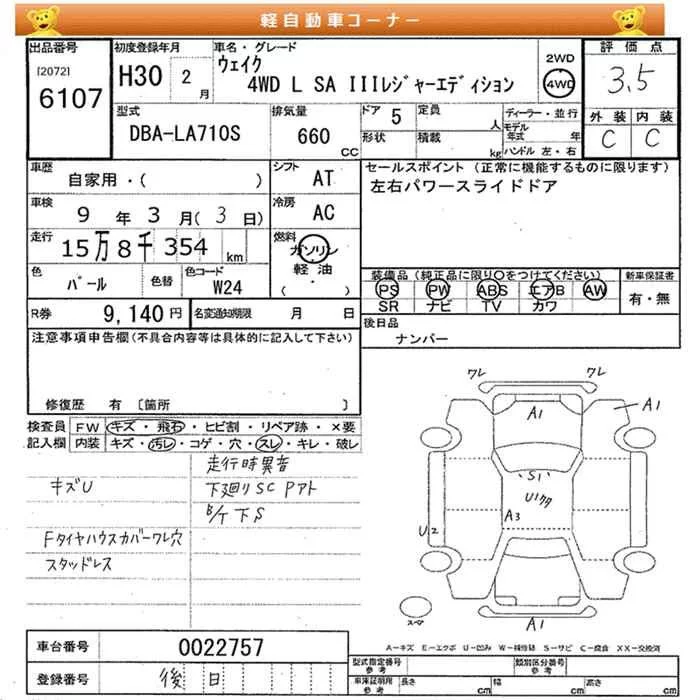 軽自動車コーナー
出品番号
[2072]
6107
初度登録年月
H30 2 月
車名・グレード
ウェイク
4WD L SA IIIレジャーエディション
2WD
4WD
評価点
3.5
外装 内装
C C
型式
DBA-LA710S
排気量
660
CC
ドア 5
形状
定員
人
積載
kg
ディーラー・並行
モデル年式 年
ハンドル 左・右
車歴
自家用・( )
シフト
AT
車検
9 年 3 月( 3 日)
冷房
AC
走行
15万8千354 km
燃料
ガソリン
軽油
( ・ )
色
パール
色替
色コード
W24
R券
9,140円
名変通知期限 月 日
セールスポイント (正常に機能するものに限ります)
左右パワースライドドア
装備品(純正品に限り○をつけてください)
PS PW ABS エアB AW
SR ナビ TV カワ
新車保証書
有・無
後日品
ナンバー
注意事項申告欄(不具合内容等は具体的に記入して下さい)
修復歴 有 〔箇所 〕
検査員記入欄
FW キズ・飛石・ヒビ割・リペア跡・×要
内装 キズ・汚レ・コゲ・穴・スレ・キレ・破レ
走行時異音
キズU
下廻りSC Pアト
B/ケ下S
Fタイヤハウスカバーワレ穴
スタッドレス
ワレ
ワレ
A1
A1
S1
U1多
A3
U2
A1
スペア
A-キズ E-エクボ U-凹み W-補修跡 S-サビ C-腐食 XX-交換済
車台番号
0022757
登録番号
後日
型式指定番号
参考
類別区分番号
参考
車庫証明用
参考
長さ cm
幅 cm
高さ cm